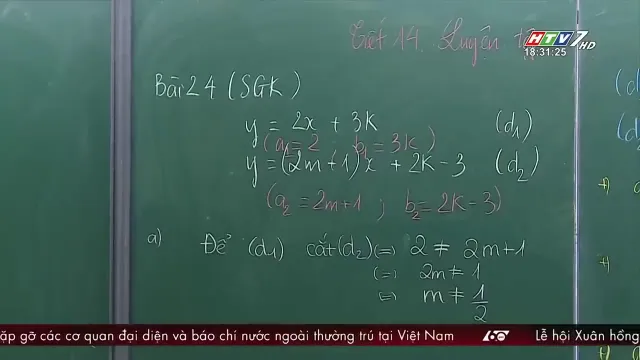 HTV7 HD
18:31:25
Tiết 14 Luyện
Bài 24 (SGK)
y = 2x + 3K (d1)
(a1 = 2 ; b1 = 3K)
y = (2m+1)x + 2K - 3 (d2)
(a2 = 2m+1 ; b2 = 2K - 3)
a) Để (d1) cắt (d2) (=) 2 ≠ 2m+1
(=) 2m ≠ 1
(=) m ≠ 1/2
ặp gỡ các cơ quan đại diện và báo chí nước ngoài thường trú tại Việt Nam 60 Lễ hội Xuân hồng